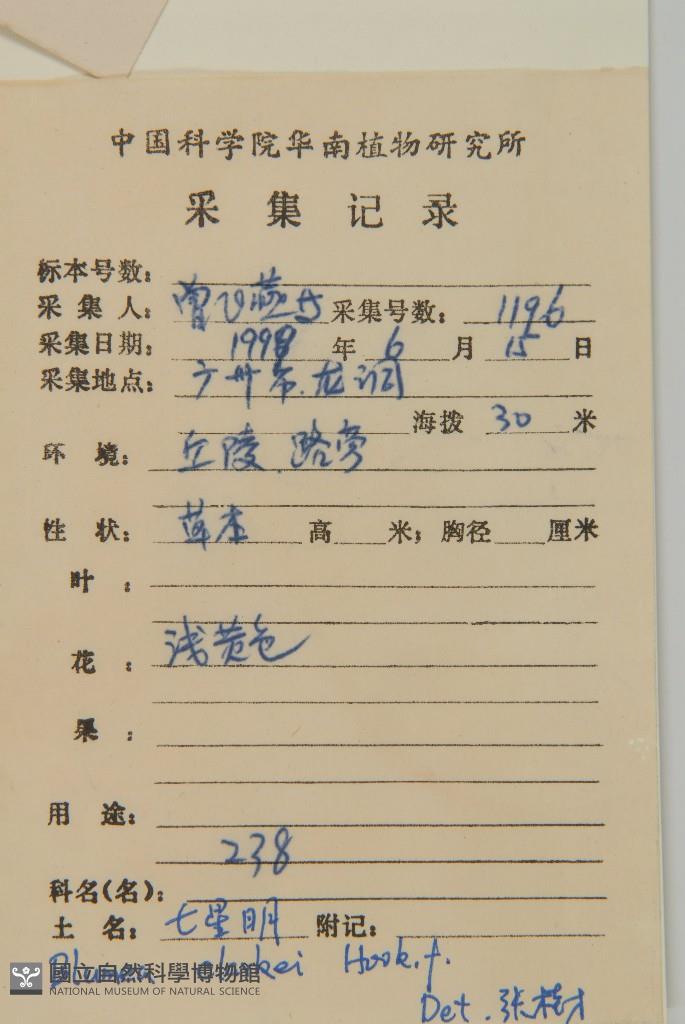 中国科学院华南植物研究所
采集记录
标本号数：
采集人： 曾飞燕 采集号数： 1196
采集日期： 1998 年 6 月 15 日
采集地点： 广州市.龙洞
海拨 30 米
环境： 丘陵.路旁
性状： 草本 高 米；胸径 厘米
叶：
花： 浅黄色
果：
用途：
238
科名(名)：
土名： 七星明 附记：
Blumea clarkei Hook.f.
Det.张桂才
國立自然科學博物館
NATIONAL MUSEUM OF NATURAL SCIENCE